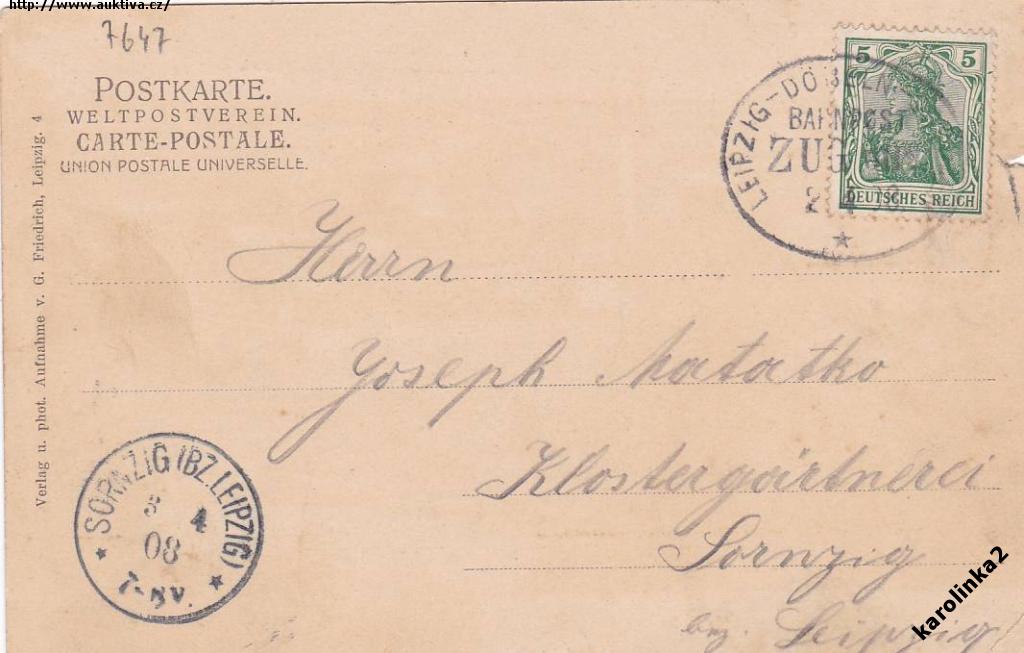 http://www.auktiva.cz/
7647
POSTKARTE.
WELTPOSTVEREIN.
CARTE-POSTALE.
UNION POSTALE UNIVERSELLE.
Verlag u. phot. Aufnahme v. G. Friedrich, Leipzig. 4
5 5
DEUTSCHES REICH
LEIPZIG-DÖBELN
BAHNPOST
ZUG
2 4 08
Herrn
Joseph Matatko
Klostergärtnerei
Sornzig
bez. Leipzig
SORNZIG (BZ. LEIPZIG)
3 4
08
7-8V.
karolinka2